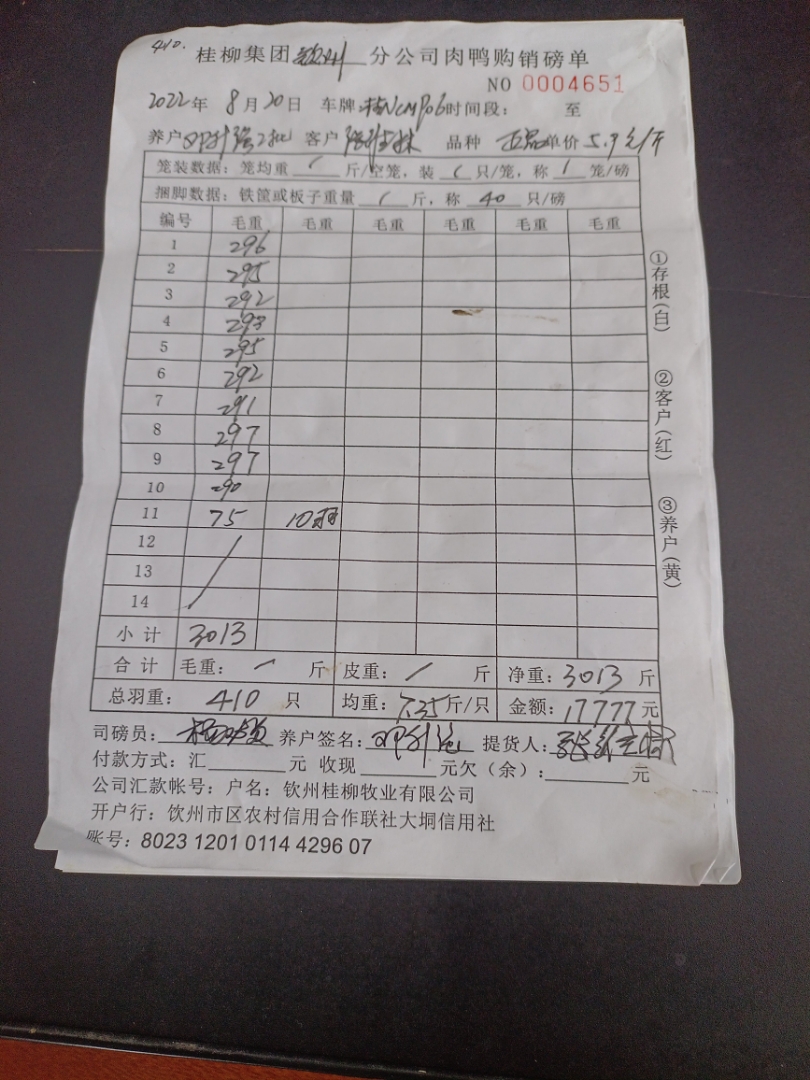 410.
桂柳集团钦州分公司肉鸭购销磅单
NO 0004651
2022年 8月20日 车牌: 时间段: 至
养户 2批 客户 品种 单价 5.9元/斤
笼装数据: 笼均重 / 斤/空笼, 装 / 只/笼, 称 / 笼/磅
捆脚数据: 铁筐或板子重量 / 斤, 称 40 只/磅
编号 毛重 毛重 毛重 毛重 毛重 毛重
1 296
2 295
3 292
4 293
5 295
6 292
7 291
8 297
9 297
10 290
11 75 10羽
12
13
14
小计 3013
合计 毛重: / 斤 皮重: / 斤 净重: 3013 斤
总羽重: 410 只 均重: 7.35斤/只 金额: 17777元
司磅员: 养户签名: 提货人:
付款方式: 汇 元 收现 元欠(余): 元
公司汇款帐号: 户名: 钦州桂柳牧业有限公司
开户行: 钦州市区农村信用合作联社大垌信用社
账号: 8023 1201 0114 4296 07
①存根(白)
②客户(红)
③养户(黄)